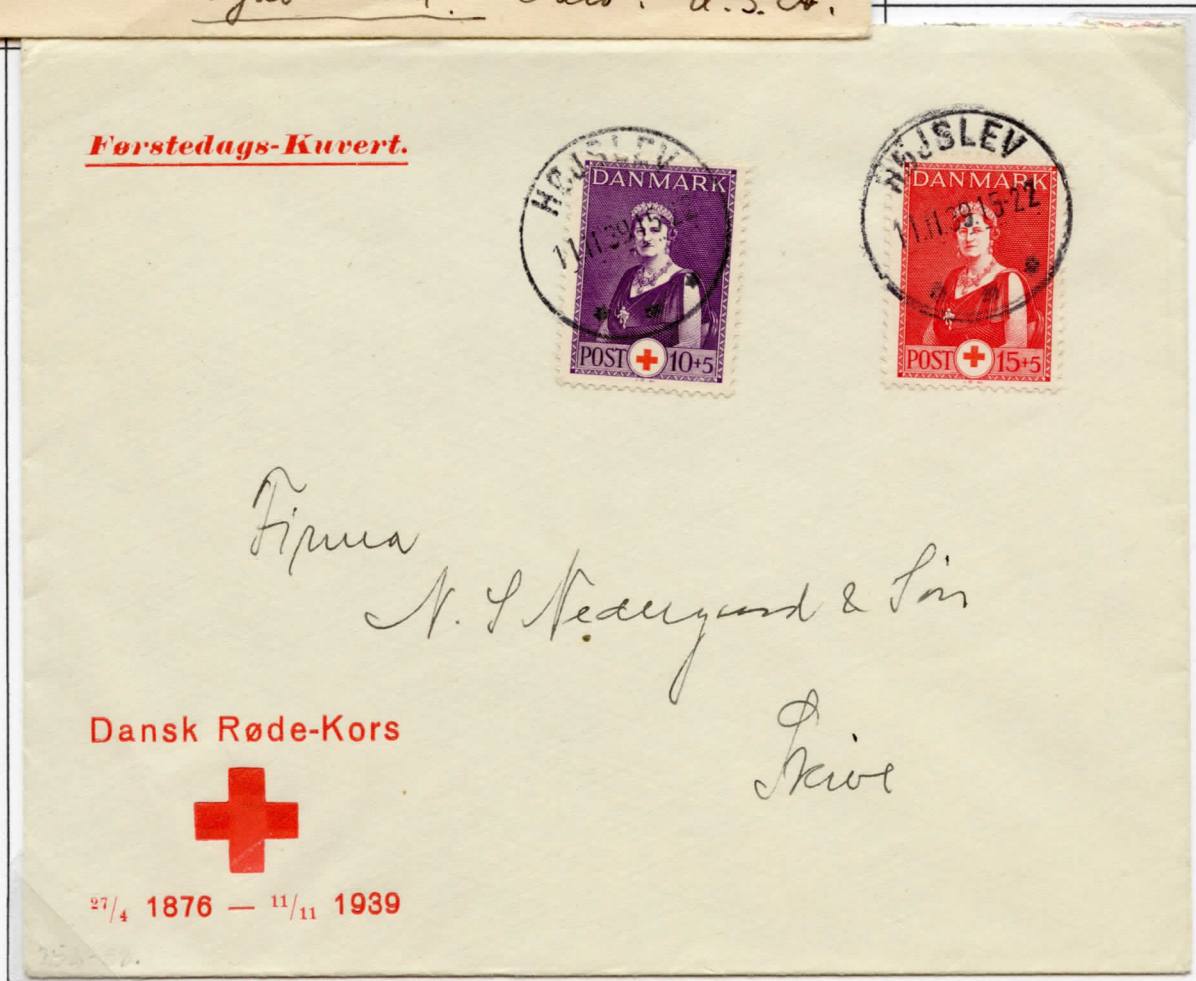 U.S.A.
Førstedags-Kuvert.
HØJSLEV
11.11.39.15-22
DANMARK
POST 10+5
HØJSLEV
11.11.39.15-22
DANMARK
POST 15+5
Firma
N. S Nedergaard & Søn
Skive
Dansk Røde-Kors
27/4 1876 — 11/11 1939